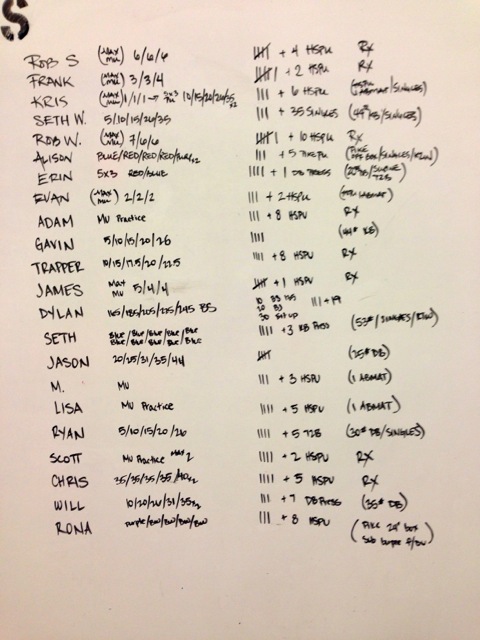 S
ROB S (MAX MU) 6/6/6 卌 + 4 HSPU RX
FRANK (MAX MU) 3/3/4 卌 + 2 HSPU RX
KRIS (MAX MU) 1/1/1 → 5x3 10/15/20/26/35 x2 ||| + 6 HSPU ABMAT/SINGLES)
SETH W. 5/10/15/26/35 ||| + 35 SINGLES (44# KB/SINGLES)
ROB W. (MAX MU) 7/6/6 + 10 HSPU RX
ALISON BLUE/RED/RED/RED/ x2 ||| + 5
ERIN 5x3 RED/BLUE |||| + 1 DB PRESS
EVAN (MAX MU) 2/2/2 ||| + 2 HSPU ABMAT)
ADAM MU Practice ||| + 8 HSPU RX
GAVIN 5/10/15/20/26 |||| (44# KB)
TRAPPER 10/15/17.5/20/22.5 ||| + 8 HSPU RX
JAMES MAX MU 5/4/4 + 1 HSPU RX
DYLAN 165/185/205/225/245 BS ||| + 19
SETH Blue/Blue/Blue/Blue/Blue |||| + 3 KB Press (53#/SINGLES/
Blue/Blue/Blue/Blue/Blue
JASON 20/25/31/35/44 卌 (25# DB)
M. MU ||| + 3 HSPU (1 ABMAT)
LISA MU Practice |||| + 5 HSPU (1 ABMAT)
RYAN 5/10/15/20/26 |||| + 5 T2B (30# DB/SINGLES)
SCOTT MU Practice 2 |||| + 2 HSPU RX
CHRIS 35/35/35/35/40 x2 |||| + 5 HSPU RX
WILL 10/20/26/31/35 x2 ||| + 7 DB Press (35# DB)
RONA Purple/ |||| + 8 HSPU (Pike 24" box
Sub burpee